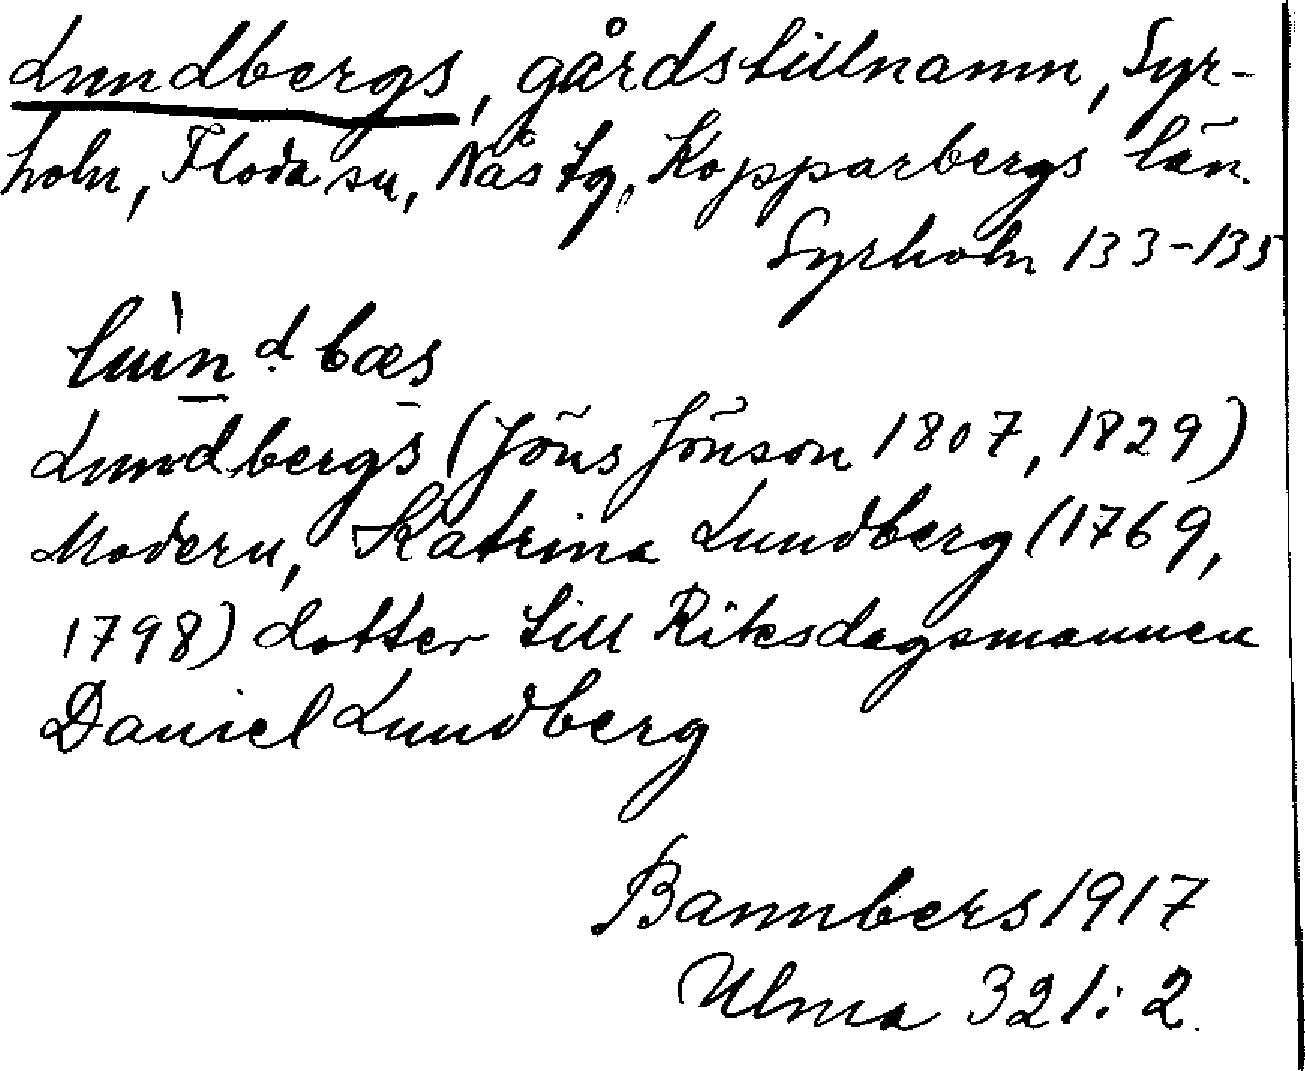 Lundbergs, gårdstillnamn, Syr-
holn, Floda sn, Nås tg, Kopparbergs län.
Syrholn 133-135
Lundbergs (Jöns Jönson 1807, 1829)
Modern, Katrina Lundberg (1769,
1798) dotter till Riksdagsmannen
Daniel Lundberg
Bannbers 1917
Ulma 321:2.